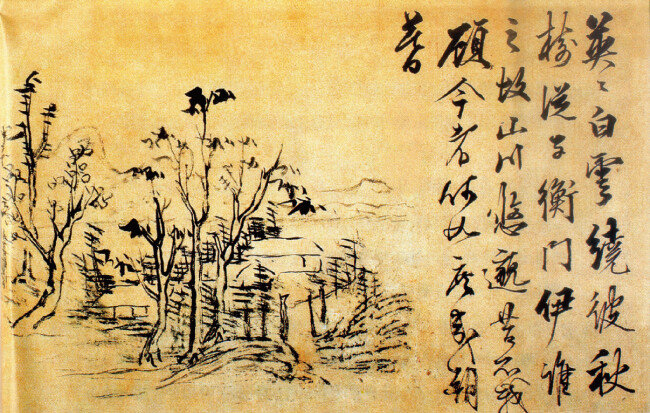 英〻白雲繞彼秋
樹從子衡門伊誰
之故山川悠邈昔不我
顧今者何如庶幾朝
暮